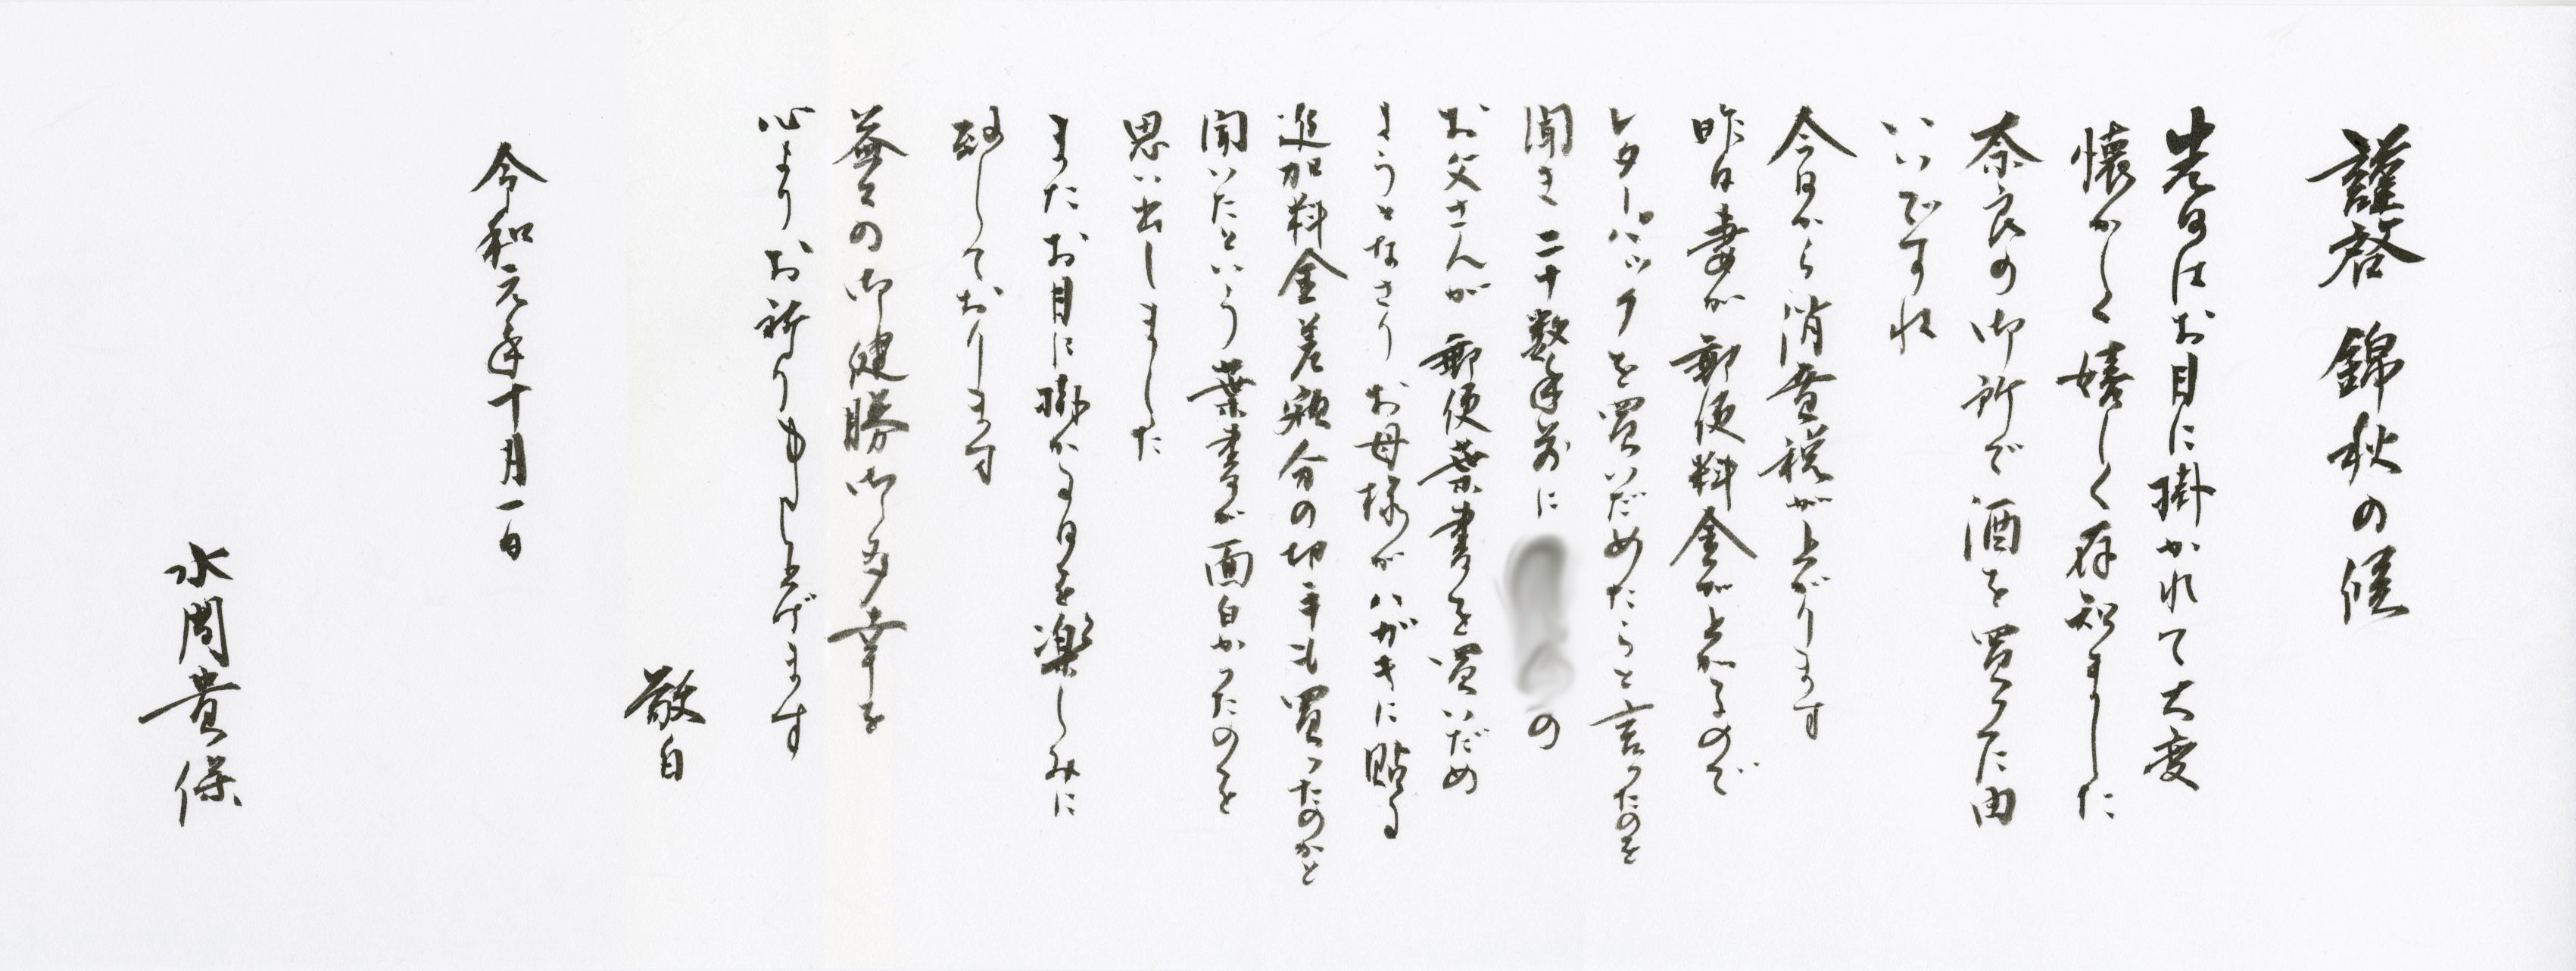 謹啓 錦秋の候
先日はお目に掛かれて大変
懐かしく嬉しく存知ました
奈良の御所で酒を買った由
いいですね
今日から消費税が上がります
昨日妻が郵便料金が上がるので
レターパックを買いだめたらと言ったのを
聞き二十数年前に
の
お父さんが郵便葉書を買いだめ
ようとなさりお母様がハガキに貼る
追加料金差額分の切手も買ったのかと
聞いたという葉書が面白かったのを
思い出しました
またお目に掛かる日を楽しみに
致しております
益々の御健勝御多幸を
心よりお祈り申し上げます
敬白
令和元年十月一日
水間貴保